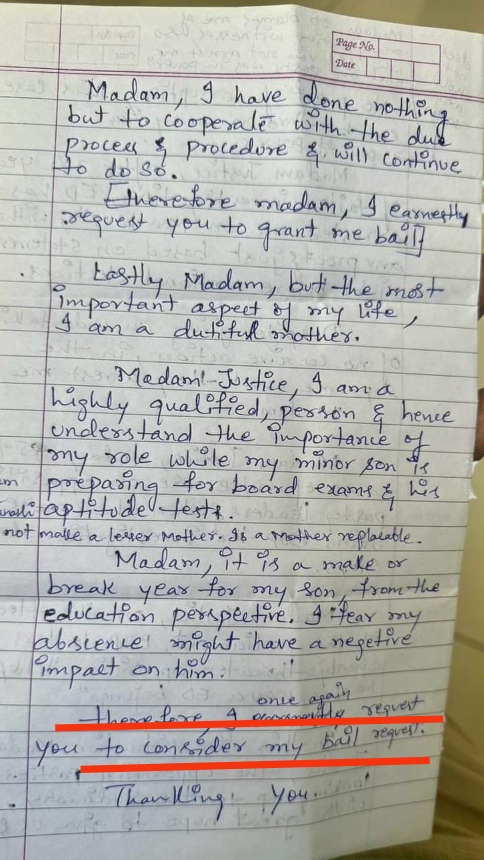 Page No.
Date
Madam, I have done nothing
but to cooperate with the due
process & procedure & will continue
to do so.
[Therefore madam, I earnestly
request you to grant me bail]
Lastly Madam, but the most
important aspect of my life,
I am a dutiful mother.
Madam Justice, I am a
highly qualified, person & hence
understand the importance of
my role while my minor son is
preparing for board exams & his
aptitude tests.
not make a lesser Mother. Is a Mother replacable.
Madam, it is a make or
break year for my son, from the
education perspective. I fear my
abscence might have a negetive
impact on him.
once again
Therefore, I request
you to consider my bail request.
Thanking you.